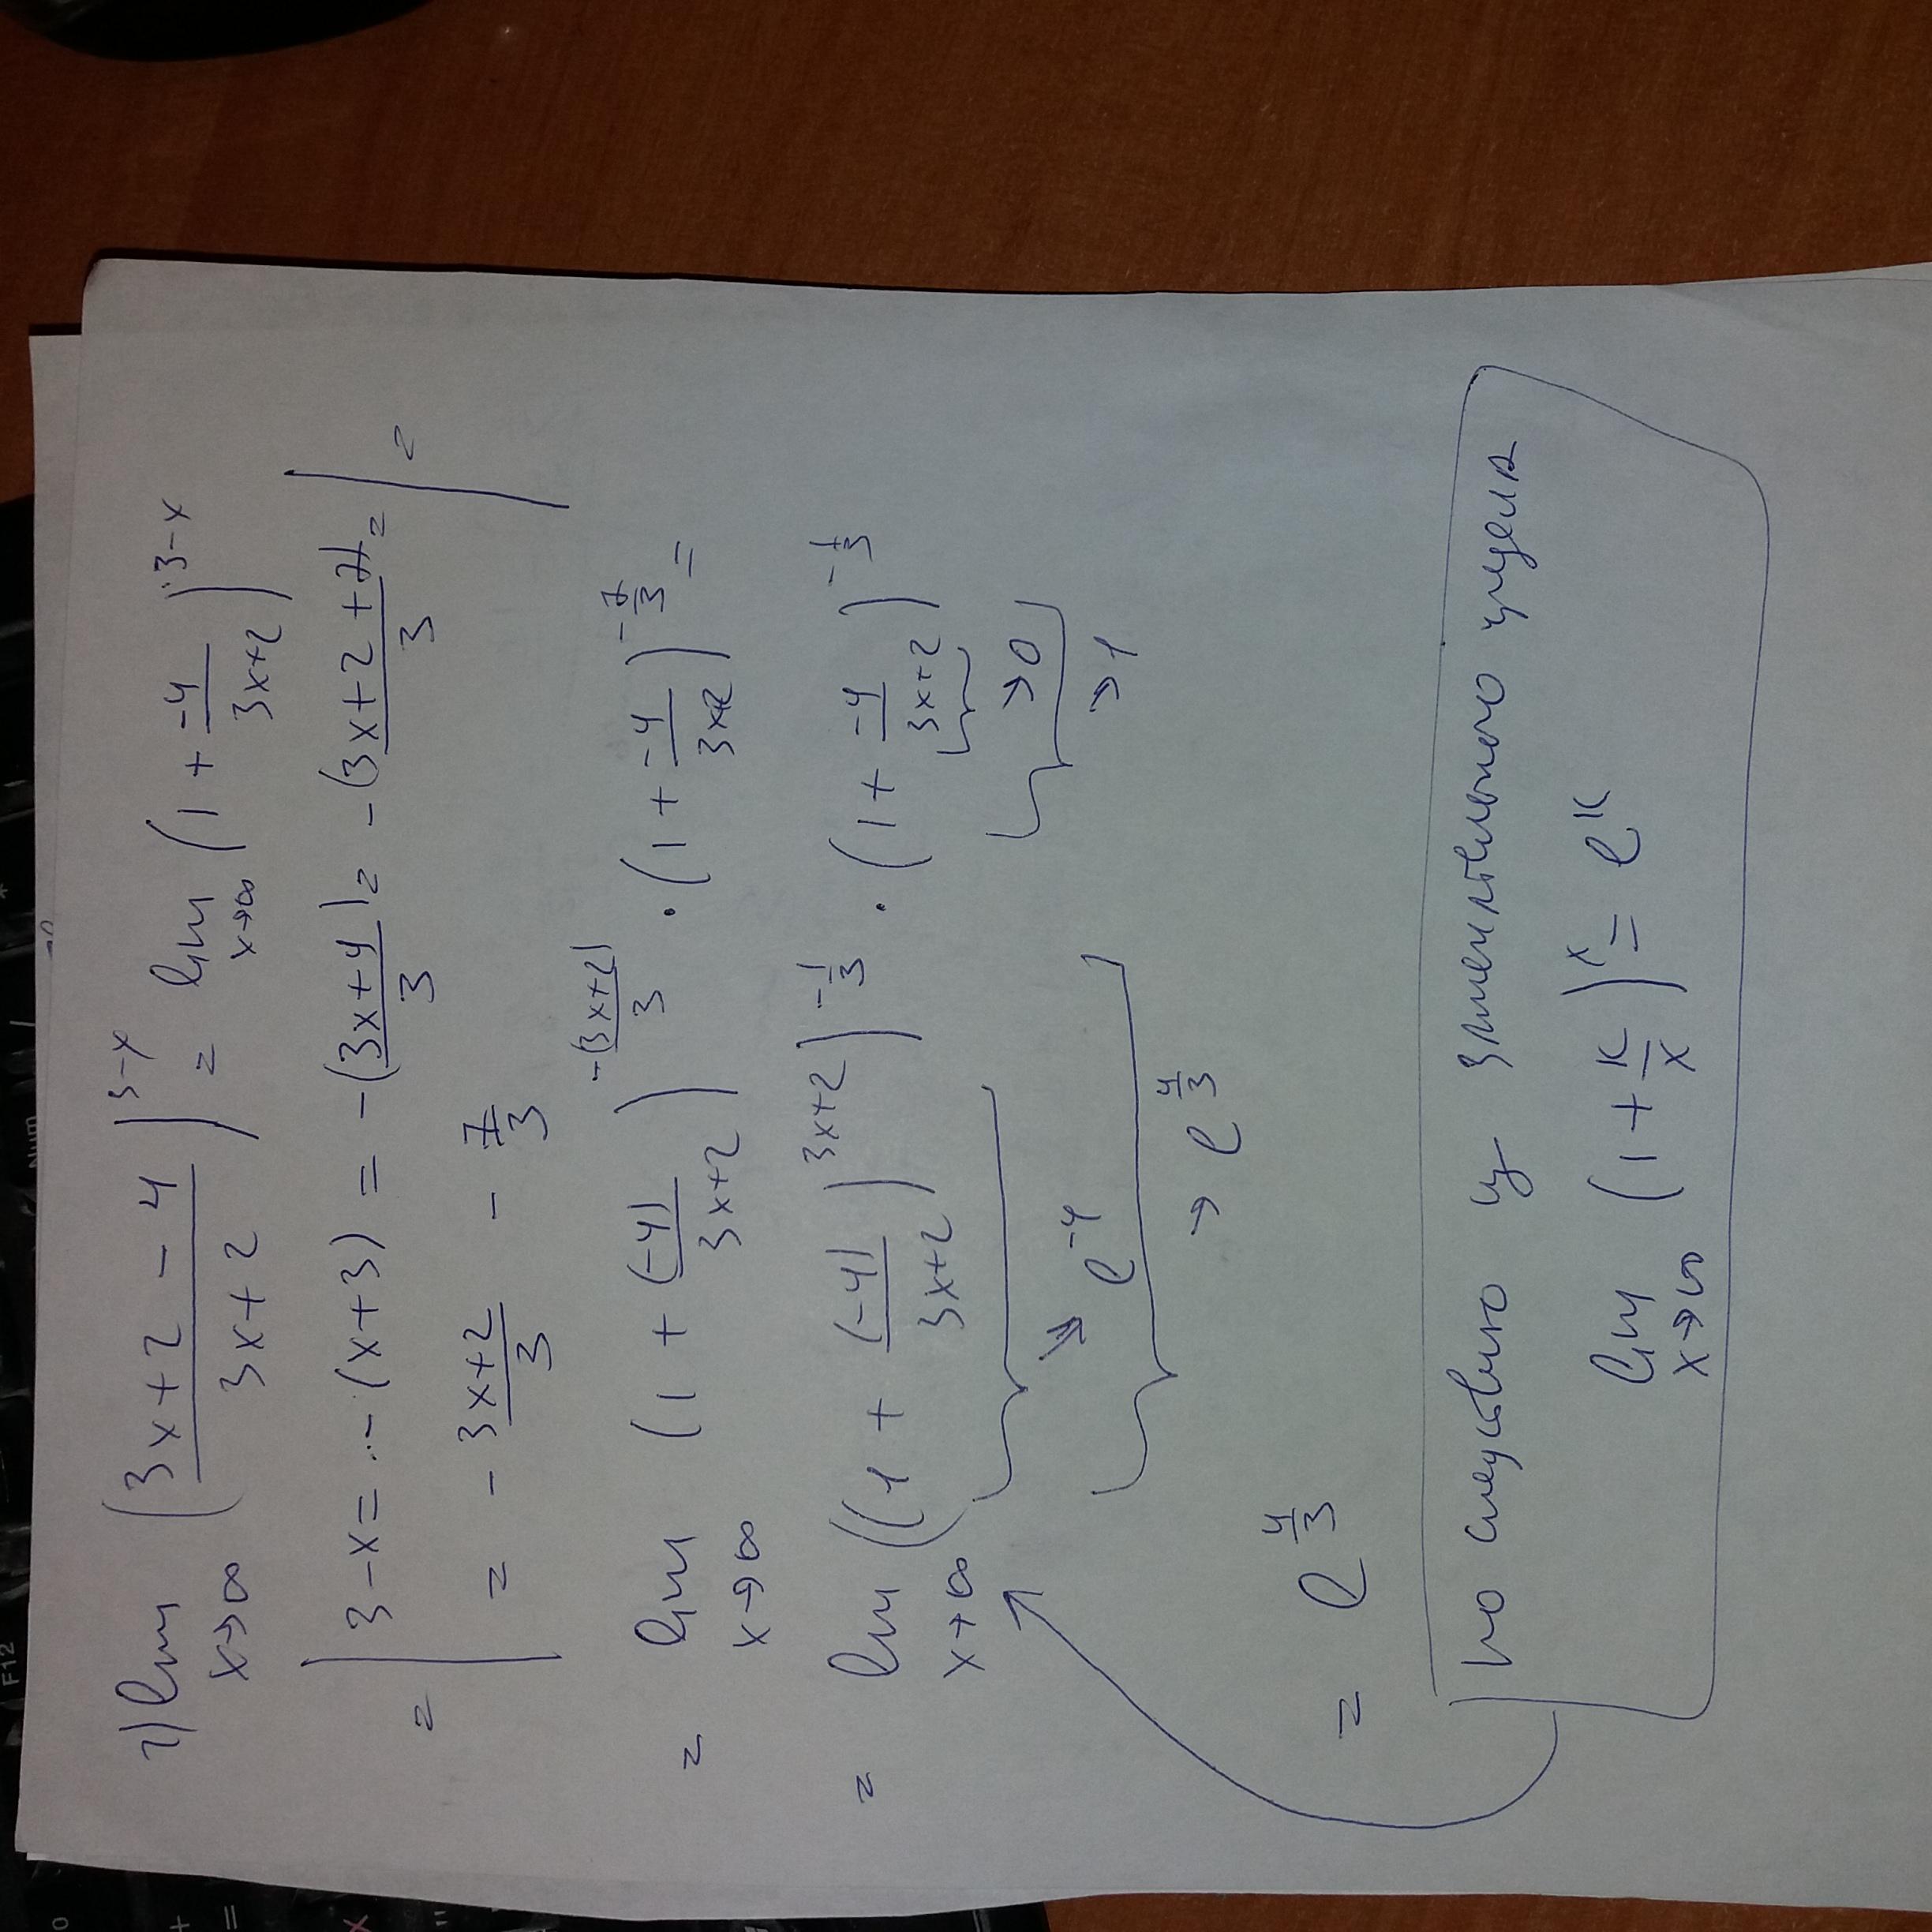 1) lim x→∞ ((3x+2-4)/(3x+2))^(3-x) = lim x→∞ (1 + (-4)/(3x+2))^(3-x)
= | 3-x = -(x+3) = -(3x+4)/3 = -(3x+2+7)/3 = | =
= - (3x+2)/3 - 7/3
= lim x→∞ (1 + (-4)/(3x+2))^(-(3x+2)/3) · (1 + (-4)/(3x+2))^(-7/3) =
= lim x→∞ ((1 + (-4)/(3x+2))^(3x+2))^(-1/3) · (1 + (-4)/(3x+2))^(-7/3)
→ e^(-4) → 0
→ e^(4/3) → 1
= e^(4/3)
по следствию из замечательного предела
lim x→∞ (1 + k/x)^x = e^k
F12
Num